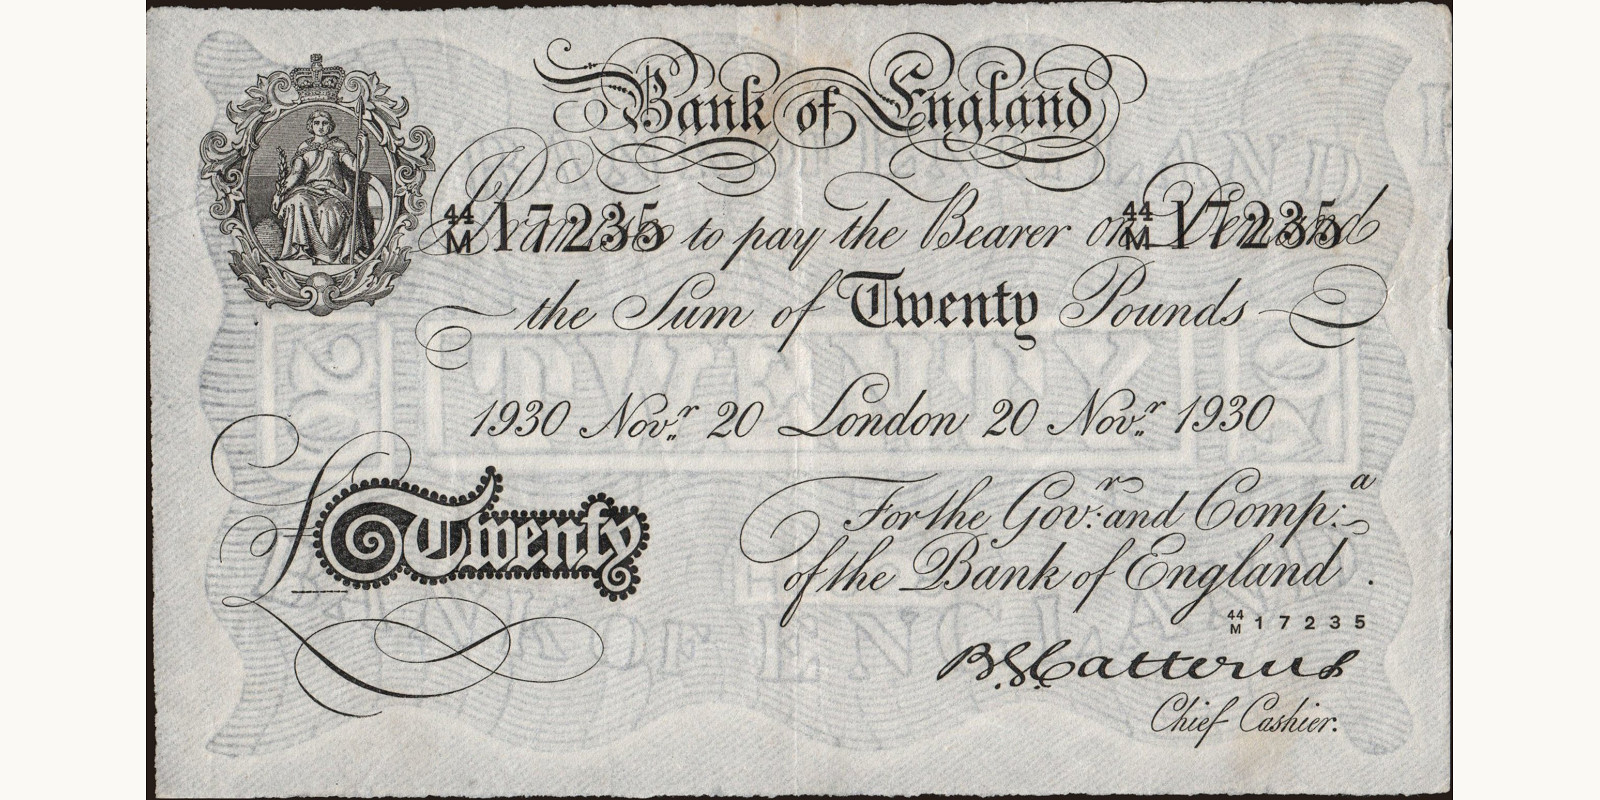 Bank of England
44/M 17235 44/M 17235
I Promise to pay the Bearer on Demand
the Sum of Twenty Pounds
1930 Novr. 20 London 20 Novr. 1930
For the Govr. and Compa.
of the Bank of England.
£Twenty
44/M 17235
B.G. Catterns
Chief Cashier.
BANK OF ENGLAND
20 TWENTY 20
BANK OF ENGLAND